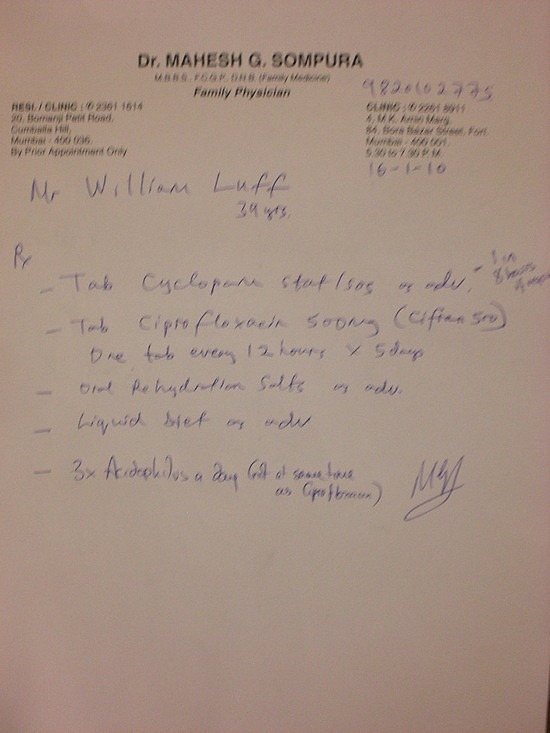 Dr. MAHESH G. SOMPURA
M.B.B.S., F.C.G.P., D.N.B. (Family Medicine)
Family Physician
9820102775
RESI. / CLINIC : ✆ 2361 1614
20, Bomanji Petit Road,
Cumballa Hill,
Mumbai - 400 036.
By Prior Appointment Only
CLINIC : ✆ 2261 8911
4, M.K. Amin Marg,
84, Bora Bazar Street, Fort,
Mumbai - 400 001.
5.30 to 7.30 P.M.
16-1-10
Mr William Luff
39 yrs.
Rx
- Tab Cyclopam stat/sos as adv. - 1 in 8 hours
- Tab Ciprofloxacin 500mg (Cifran 500)
One tab every 12 hours x 5 days
- Oral Rehydration Salts as adv.
- Liquid diet as adv
- 3x Acidophilus a day (not at same time
as Ciprofloxacin)